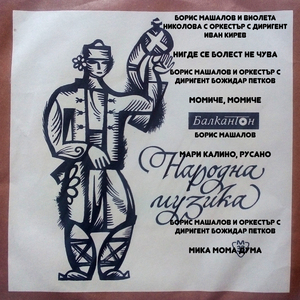 БОРИС МАШАЛОВ И ВИОЛЕТА
НИКОЛОВА С ОРКЕСТЪР С ДИРИГЕНТ
ИВАН КИРЕВ
НИГДЕ СЕ БОЛЕСТ НЕ ЧУВА
БОРИС МАШАЛОВ И ОРКЕСТЪР С
ДИРИГЕНТ БОЖИДАР ПЕТКОВ
МОМИЧЕ, МОМИЧЕ
Балкантон
БОРИС МАШАЛОВ
МАРИ КАЛИНО, РУСАНО
Народна
музика
БОРИС МАШАЛОВ И ОРКЕСТЪР С
ДИРИГЕНТ БОЖИДАР ПЕТКОВ
МИКА МОМА ДУМА